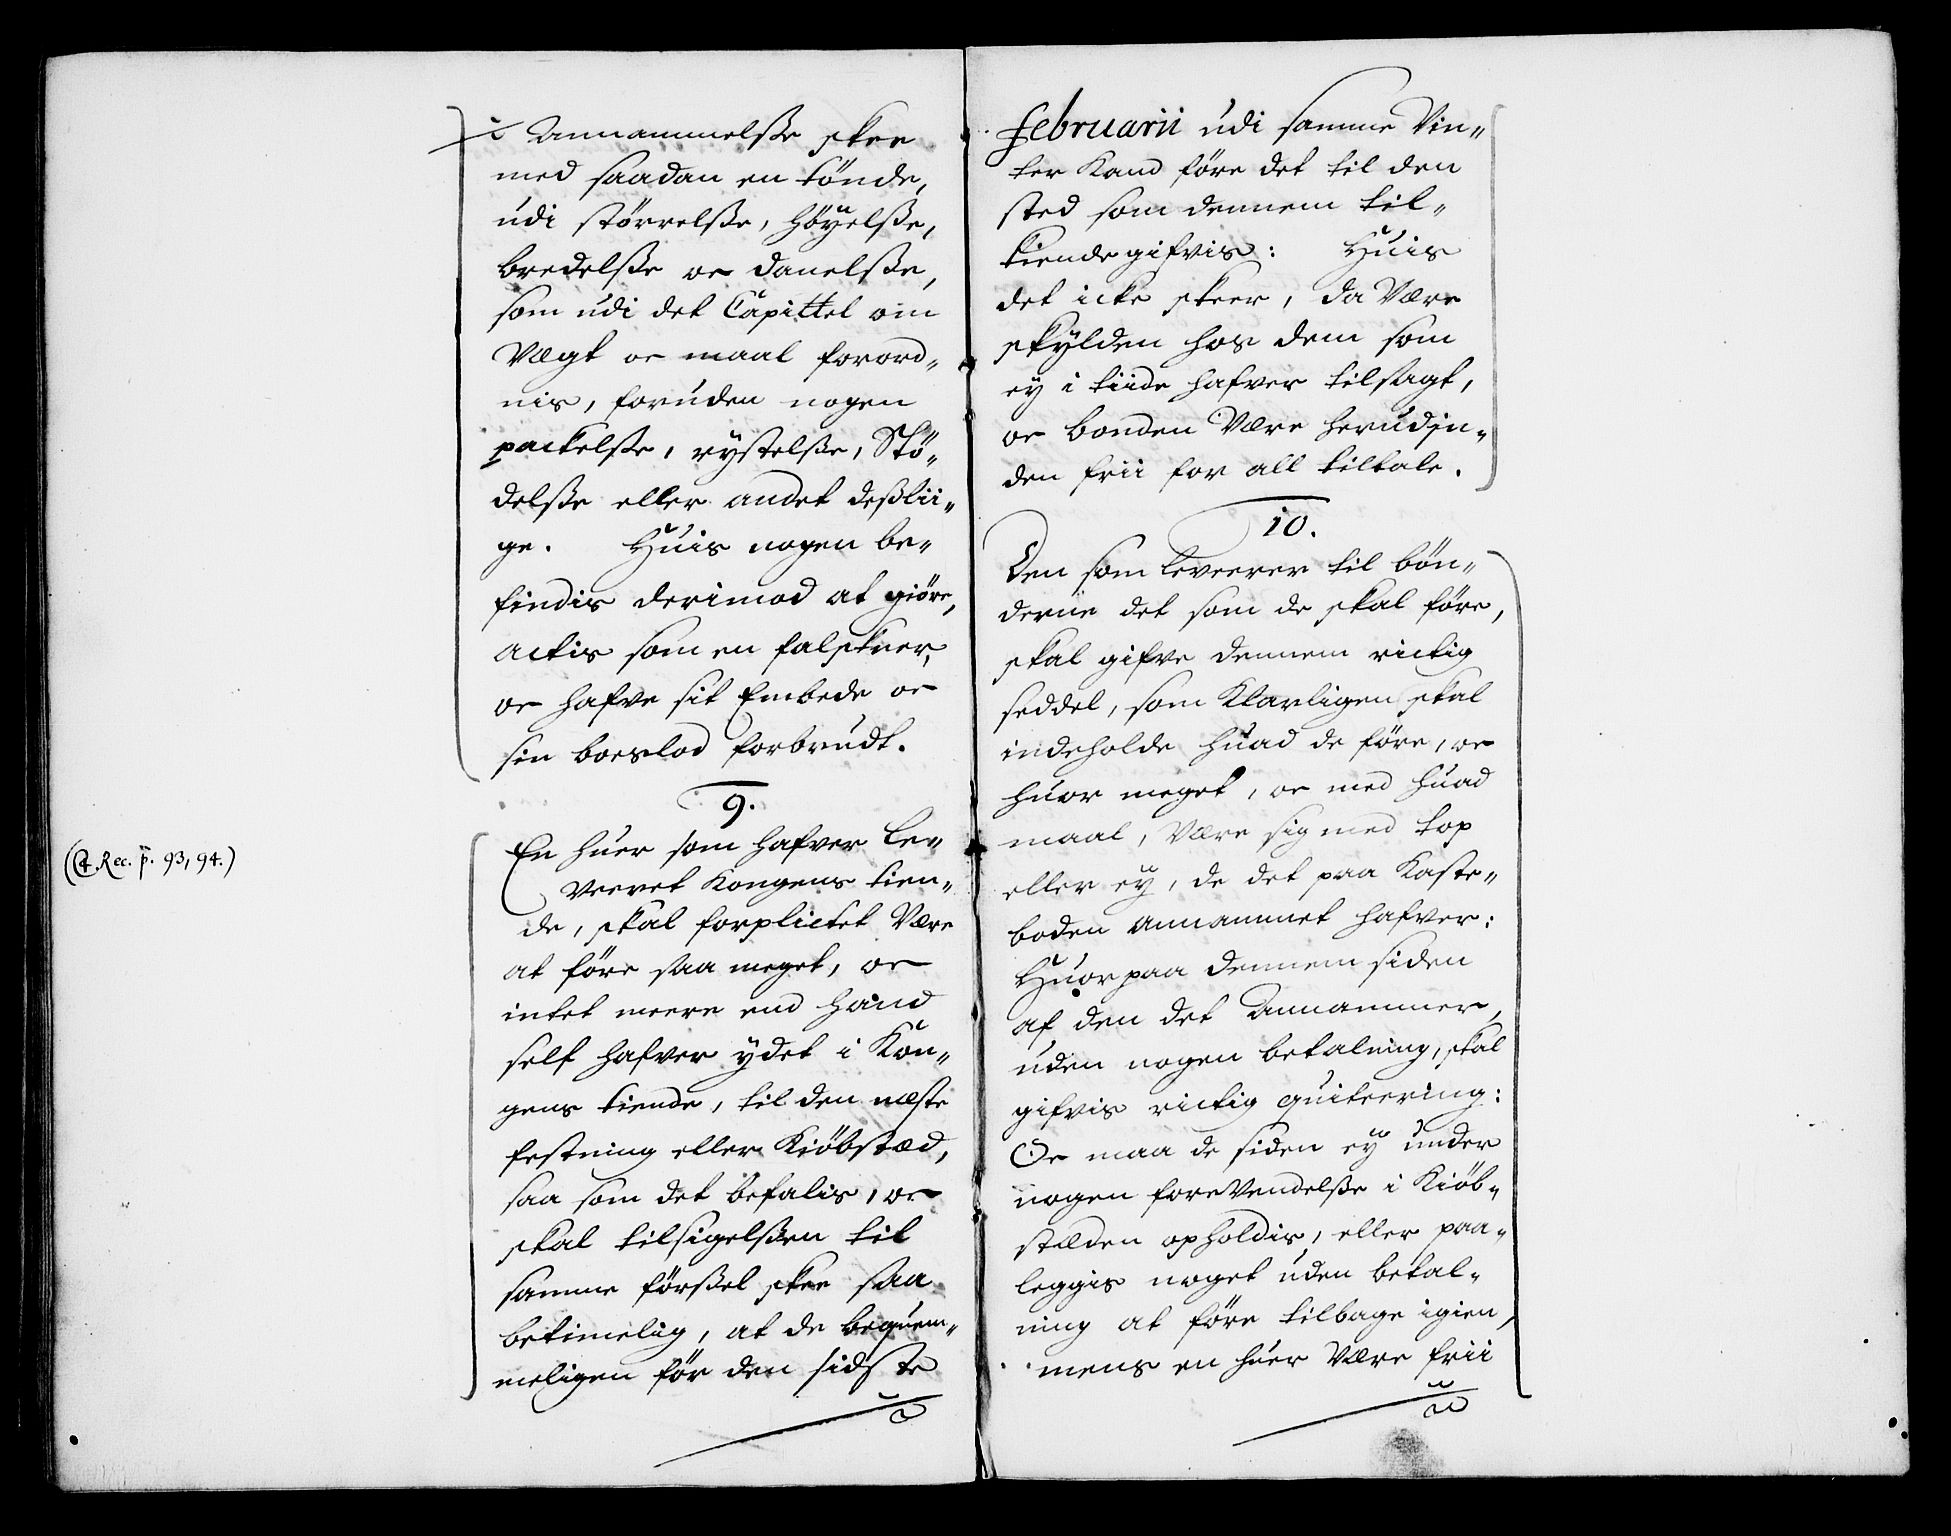 Annammelsße skee
med saadan en tönde,
udi störrelsße, höyelsße,
bredelsße oc danelsße,
som udi det Capittel om
Vægt oc maal forord„
nis, foruden nogen
packelsße, rystelsße, Stö„
delsße eller andet desßlii„
ge. Huis nogen be„
findis derimod at giöre,
actis som en falskner,
oc hafve sit Embede oc
sin boeslod forbrudt.
9.
En huer som hafver le„
veeret Kongens tien„
de, skal forplictet Være
at före saa meget, oc
intet meere end hand
self hafver ydet i Kon„
gens tiende, til den næste
festning eller Kiöbstæd,
saa som det befalis, oc
skal tilsigelsßen til
samme försßel skee saa
betimelig, at de beqvem„
meligen för den sidste
(4. Rec. p. 93, 94.)
Februarii udi samme Vin„
ter Kand före det til den
sted som dennem til„
kiende gifvis: Huis
det icke skeer, da Være
skylden hos dem som
ey i tiide hafver tilsagt,
oc bonden Være herudin„
den frii for all tiltale.
10.
Den som leveerer til bön„
derne det som de skal före,
skal gifve dennem rictig
seddel, som Klarligen skal
indeholde huad de före, oc
huor meget, oc med huad
maal, Være sig med top
eller ey, de det paa Kaste„
boden annammet hafver:
Huorpaa dennem siden
af den det Annammer,
uden nogen betalning, skal
gifvis rictig quiteering:
Oc maa de siden ey under
nogen foreVendelsße i Kiöb„
stæden opholdis, eller paa„
leggis noget uden betal„
ning at före tilbage igien,
mens en huer Være frii